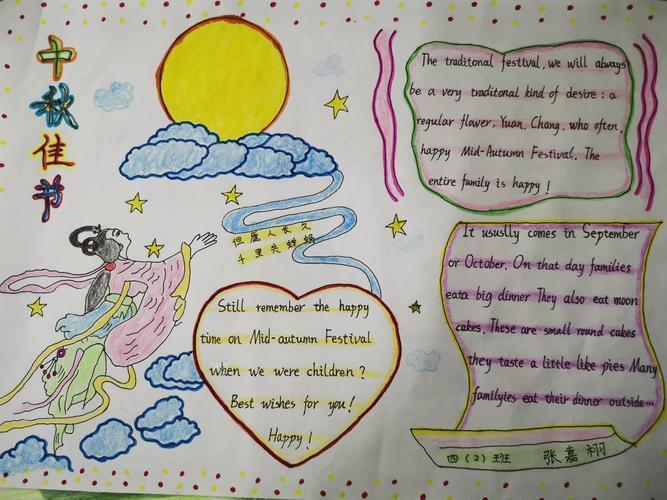 中秋佳节
The traditonal festival, we will always
be a very traditonal kind of desire: a
regular flower. Yuan, Chang, who often,
happy Mid-Autumn Festival. The
entire family is happy!
但愿人长久
千里共婵娟
It ususlly comes in September
or October. On that day families
eata big dinner They also eat moon
cakes. These are small round cakes
they taste a little like pies Many
familyies eat their dinner outside...
Still remember the happy
time on Mid-autumn Festival
when we were children?
Best wishes for you!
Happy!
四（2）班 张嘉栩